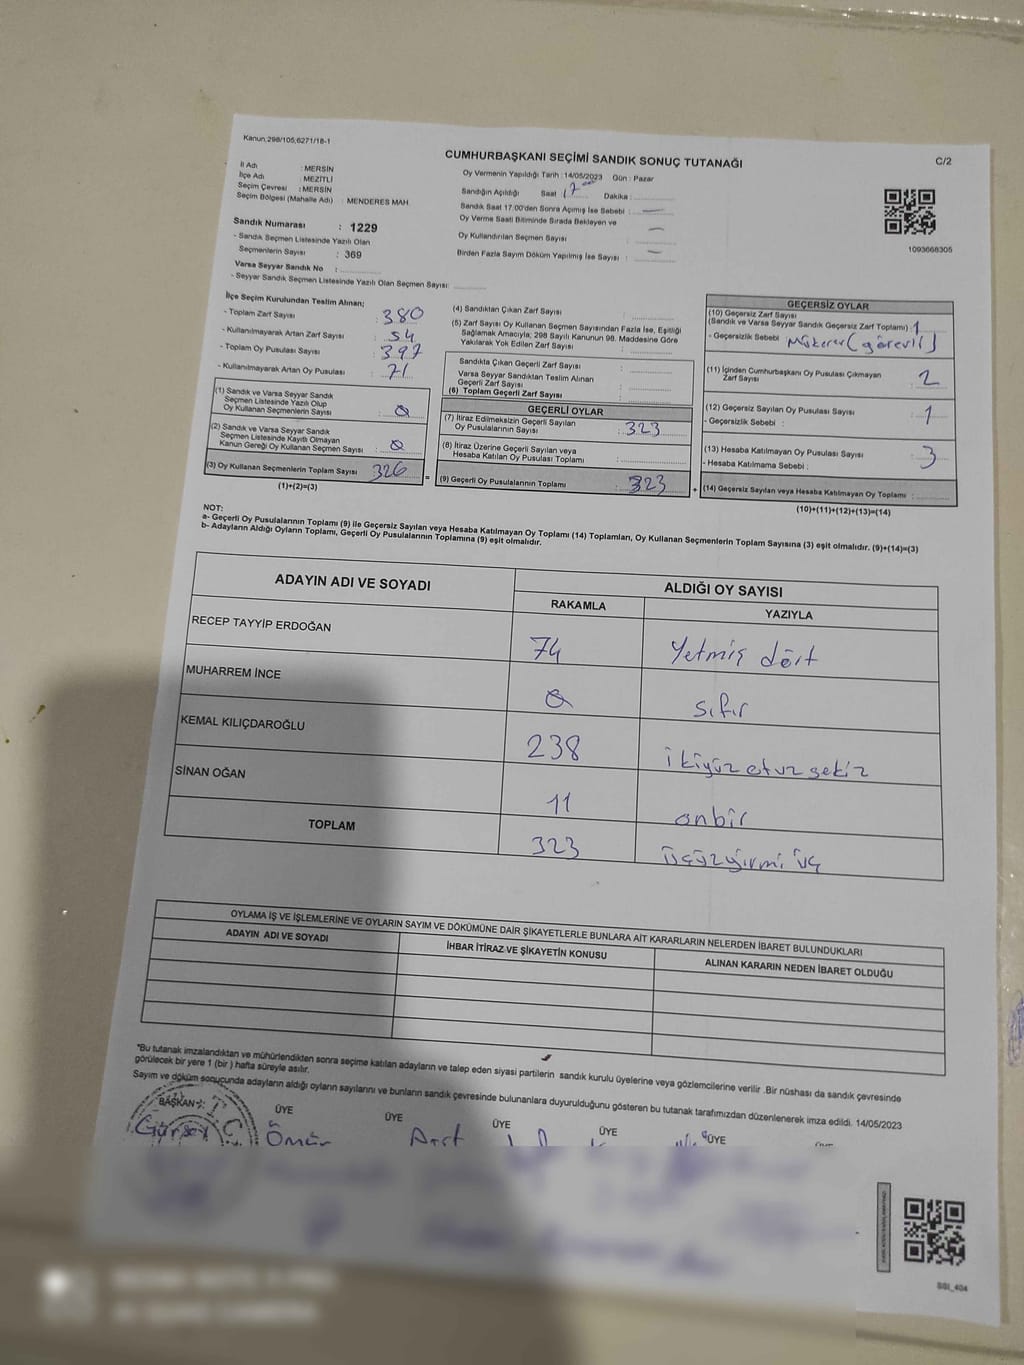 Kanun,298/105,6271/18-1
CUMHURBAŞKANI SEÇİMİ SANDIK SONUÇ TUTANAĞI
C/2
İl Adı : MERSİN
İlçe Adı : MEZİTLİ
Seçim Çevresi : MERSİN
Seçim Bölgesi (Mahalle Adı) : MENDERES MAH.
Oy Vermenin Yapıldığı Tarih : 14/05/2023 Gün : Pazar
Sandığın Açıldığı Saat 17 Dakika :
Sandık Saat 17:00'den Sonra Açımış İse Sebebi : —
Oy Verme Saati Bitiminde Sırada Bekleyen ve
Oy Kullandırılan Seçmen Sayısı : —
Birden Fazla Sayım Döküm Yapılmış İse Sayısı : —
1093668305
Sandık Numarası : 1229
- Sandık Seçmen Listesinde Yazılı Olan
Seçmenlerin Sayısı : 369
Varsa Seyyar Sandık No :
- Seyyar Sandık Seçmen Listesinde Yazılı Olan Seçmen Sayısı:
İlçe Seçim Kurulundan Teslim Alınan;
- Toplam Zarf Sayısı : 380
- Kullanılmayarak Artan Zarf Sayısı : 54
- Toplam Oy Pusulası Sayısı : 397
- Kullanılmayarak Artan Oy Pusulası : 71
(1) Sandık ve Varsa Seyyar Sandık
Seçmen Listesinde Yazılı Olup
Oy Kullanan Seçmenlerin Sayısı : 0
(2) Sandık ve Varsa Seyyar Sandık
Seçmen Listesinde Kayıtlı Olmayan
Kanun Gereği Oy Kullanan Seçmen Sayısı : 0
(3) Oy Kullanan Seçmenlerin Toplam Sayısı 326
(1)+(2)=(3)
(4) Sandıktan Çıkan Zarf Sayısı :
(5) Zarf Sayısı Oy Kullanan Seçmen Sayısından Fazla İse, Eşitliği
Sağlamak Amacıyla; 298 Sayılı Kanunun 98. Maddesine Göre
Yakılarak Yok Edilen Zarf Sayısı :
Sandıkta Çıkan Geçerli Zarf Sayısı :
Varsa Seyyar Sandıktan Teslim Alınan
Geçerli Zarf Sayısı :
(6) Toplam Geçerli Zarf Sayısı :
GEÇERLİ OYLAR
(7) İtiraz Edilmeksizin Geçerli Sayılan
Oy Pusulalarının Sayısı : 323
(8) İtiraz Üzerine Geçerli Sayılan veya
Hesaba Katılan Oy Pusulası Toplamı :
= (9) Geçerli Oy Pusulalarının Toplamı : 323
GEÇERSİZ OYLAR
(10) Geçersiz Zarf Sayısı
(Sandık ve Varsa Seyyar Sandık Geçersiz Zarf Toplamı) : 1
- Geçersizlik Sebebi : Mükerrer (görevli)
(11) İçinden Cumhurbaşkanı Oy Pusulası Çıkmayan
Zarf Sayısı : 2
(12) Geçersiz Sayılan Oy Pusulası Sayısı : 1
- Geçersizlik Sebebi :
(13) Hesaba Katılmayan Oy Pusulası Sayısı : 3
- Hesaba Katılmama Sebebi :
+ (14) Geçersiz Sayılan veya Hesaba Katılmayan Oy Toplamı :
(10)+(11)+(12)+(13)=(14)
NOT:
a- Geçerli Oy Pusulalarının Toplamı (9) ile Geçersiz Sayılan veya Hesaba Katılmayan Oy Toplamı (14) Toplamları, Oy Kullanan Seçmenlerin Toplam Sayısına (3) eşit olmalıdır. (9)+(14)=(3)
b- Adayların Aldığı Oyların Toplamı, Geçerli Oy Pusulalarının Toplamına (9) eşit olmalıdır.
ADAYIN ADI VE SOYADI
ALDIĞI OY SAYISI
RAKAMLA YAZIYLA
RECEP TAYYİP ERDOĞAN 74 Yetmiş dört
MUHARREM İNCE 0 sıfır
KEMAL KILIÇDAROĞLU 238 ikiyüz otuz sekiz
SİNAN OĞAN 11 onbir
TOPLAM 323 üçyüzyirmi üç
OYLAMA İŞ VE İŞLEMLERİNE VE OYLARIN SAYIM VE DÖKÜMÜNE DAİR ŞİKAYETLERLE BUNLARA AİT KARARLARIN NELERDEN İBARET BULUNDUKLARI
ADAYIN ADI VE SOYADI
İHBAR İTİRAZ VE ŞİKAYETİN KONUSU
ALINAN KARARIN NEDEN İBARET OLDUĞU
"Bu tutanak imzalandıktan ve mühürlendikten sonra seçime katılan adayların ve talep eden siyasi partilerin sandık kurulu üyelerine veya gözlemcilerine verilir .Bir nüshası da sandık çevresinde
görülecek bir yere 1 (bir ) hafta süreyle asılır.
Sayım ve döküm sonucunda adayların aldığı oyların sayılarını ve bunların sandık çevresinde bulunanlara duyurulduğunu gösteren bu tutanak tarafımızdan düzenlenerek imza edildi. 14/05/2023
BAŞKAN ÜYE ÜYE ÜYE ÜYE ÜYE
T.C.
Gürsel Ömür
SSI_404